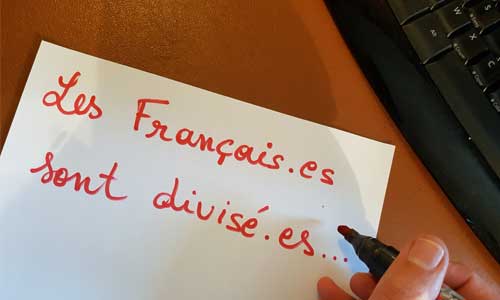 Les Français.es
sont divisé.es...